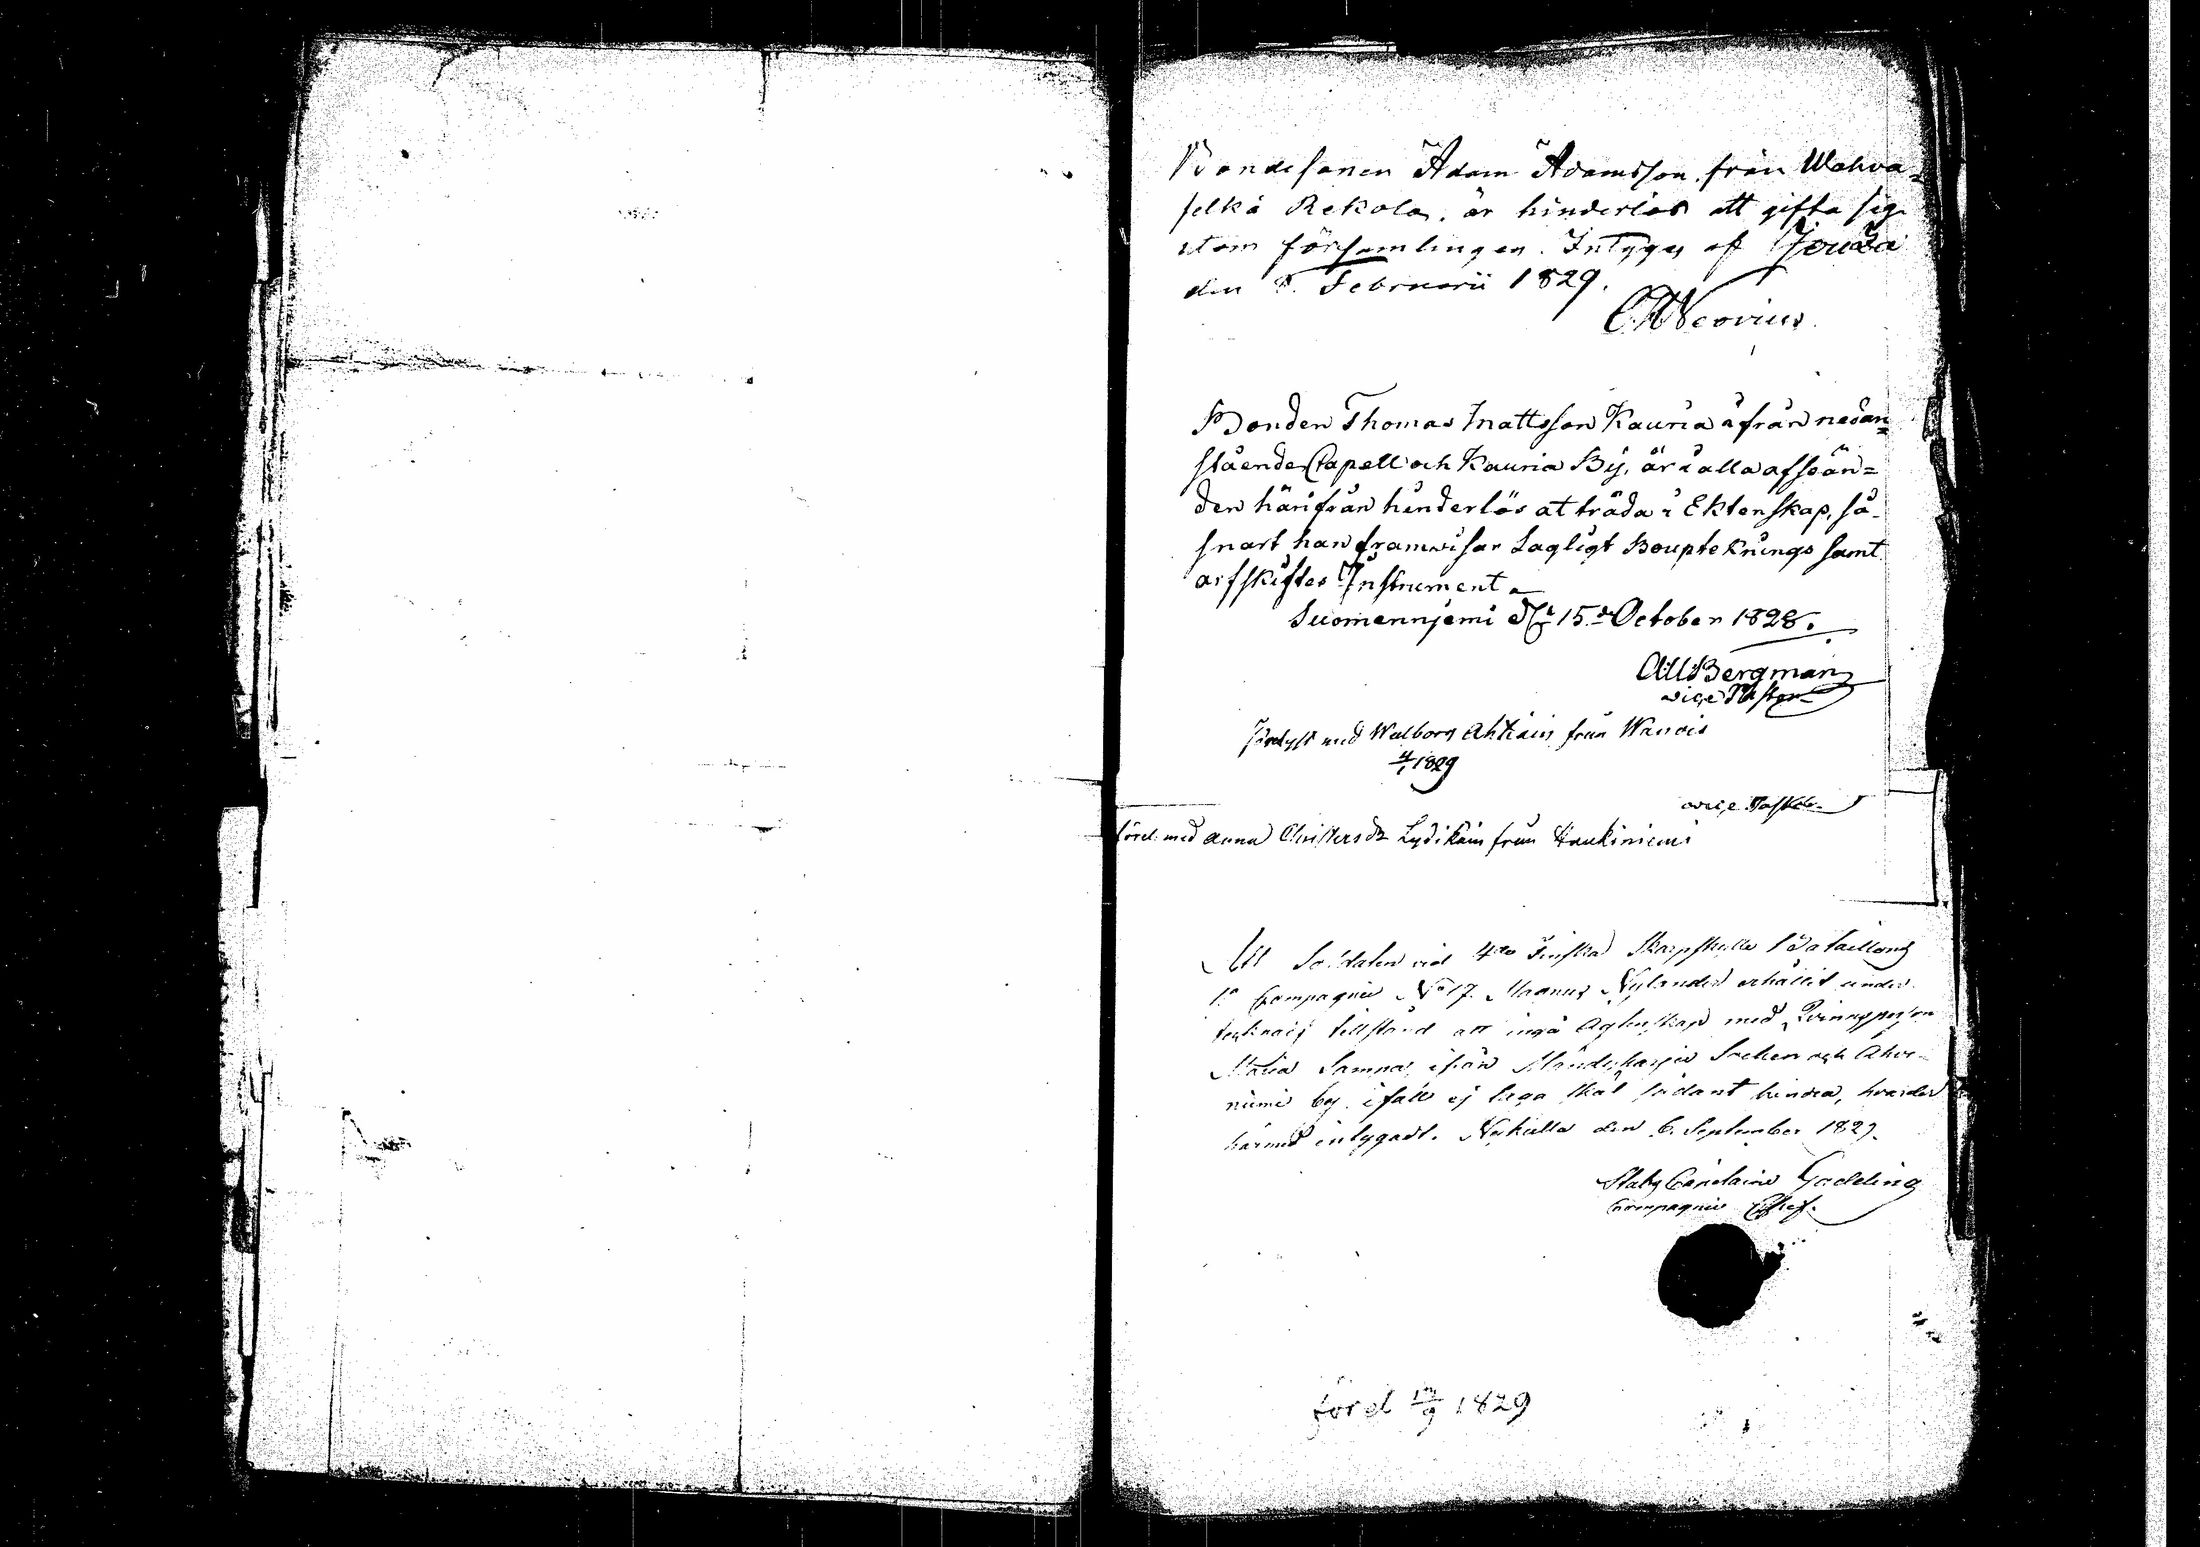 Bondesonen Adam Adamsson från Wahva-
selkä Rekola, är hinderlös att gifta sig
utom församlingen. Intygas af Jouza
den 8. Februarii 1829.
Neovius.
Bonden Thomas Mattsson Kauria ifrån nedan-
stående Capell och Kauria By, är i alla afseän-
den härifrån hinderlös at träda i Ektenskap, så-
snart han framwisar Lagligt Boupteknings samt
arfskiftes Instrument
Suomenniemi d. 15de October 1828.
Bergman
vice Pastor
med Walborg Ahtiain från
4/1 1829
vice Pastor
förel. med Anna Christersdr Lydikäin från Haukiniemi
Att Soldaten vid 4de Finska Skarpskytte Bataillons
1a Compagnie No 17. Magnus Nylander erhållit under-
tecknads tillstånd att ingå Agtenskap med Qvinnspersson
Maria Samna ifrån Mändyharju Socken och Ahve-
niemi by ifall ej laga skäl sådant hindra, hvarder
härmed intygadt. Nykulla den 6. September 1829.
Stabs Capitaine Gadding
Compagnie Chef.
förel 13/9 1829